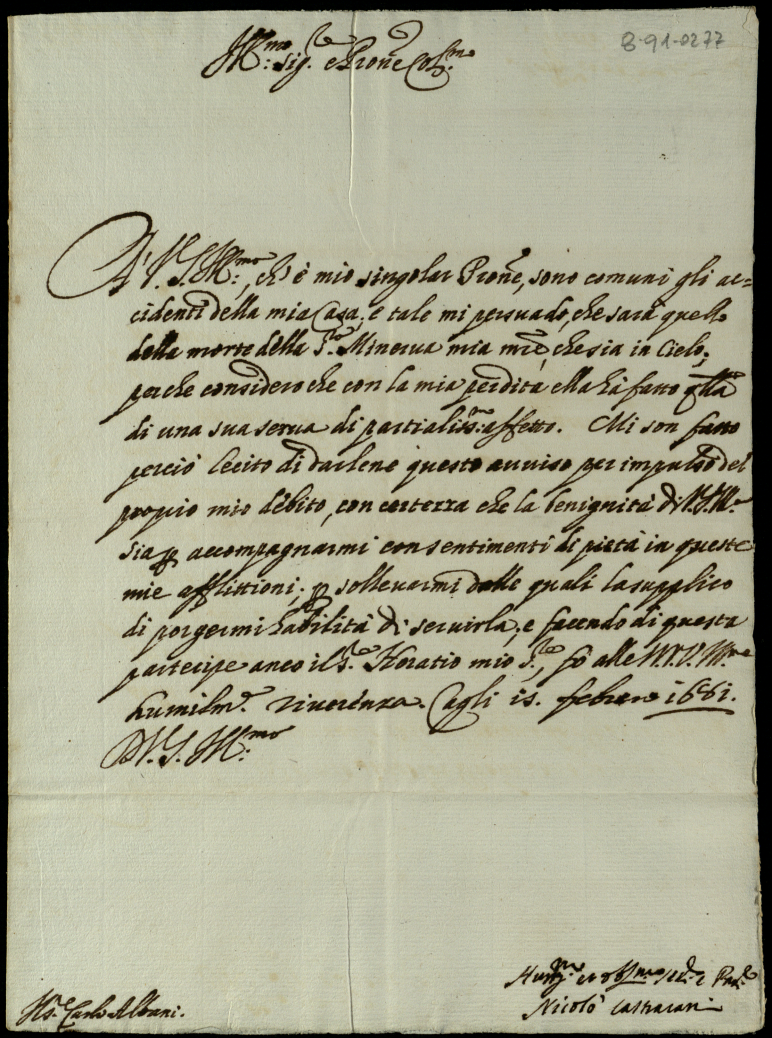 8-91-0277
Ill:mo Sig:re e Prone Col:mo
A' V.S. Ill:mo, ch'è mio singolar Prone, sono comuni gli ac=
cidenti della mia Casa; e tale mi persuado, che sarà quello
della morte della S.ra Minerua mia mre, che sia in Cielo;
perche considero che con la mia perdita ella hà fatto qlla
di una sua serua di partialiss:mo affetto. Mi son fatto
perciò lecito di darlene questo auuiso per impulso del
proprio mio debito, con certezza che la benignità di V.S. Ill.ma
sia p accompagnarmi con sentimenti di pietà in queste
mie afflittioni; p solleuarmi dalle quali la supplico
di porgermi habilità di seruirla, e facendo di questa
partecipe anco il S.re Horatio mio S.re, fò alle VV.SS. Ill.me
humilm.e riuerenza. Cagli is. febraro 1681.
D V.S. Ill:mo
Hum:mo et obl:mo
Nicolò Castracani
Carlo Albani.